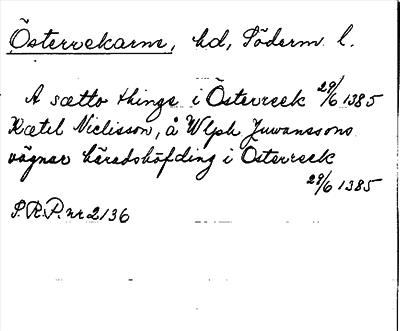 Östervekarne, hd, Söderm. l.
A sætto thinge i Österreek 29/6 1385
Kætil Niclisson, å Wlph Juwanssons
vägnar häradshöfding i Österreek
29/6 1385
S.R.P. nr 2136